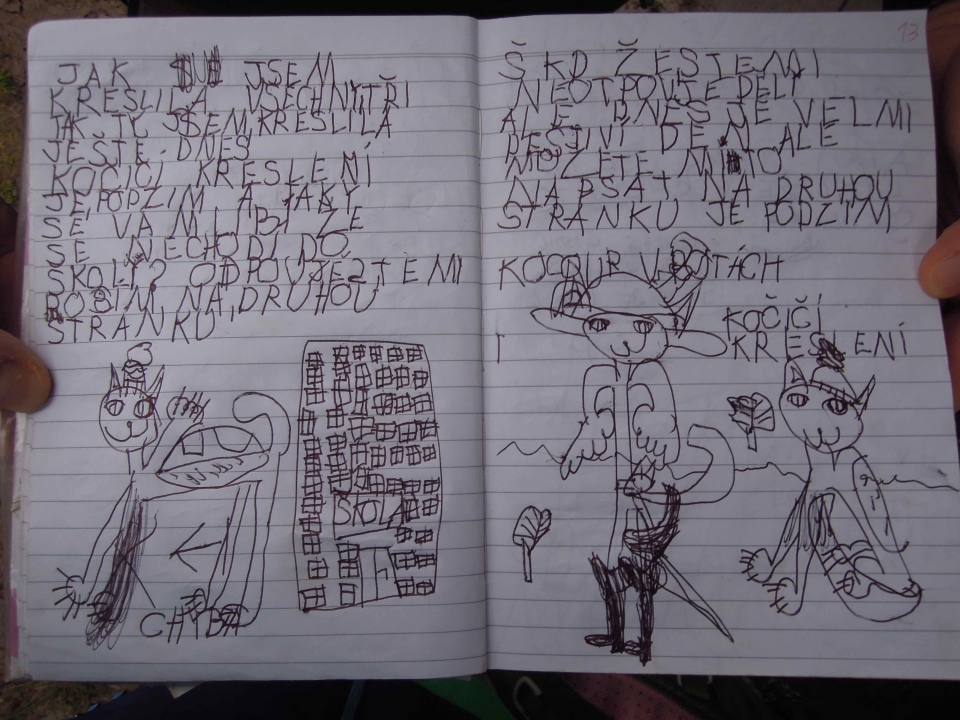 JAK JSEM
KRESLILA VŠECHNY TŘI
TAK TY JSEM KRESLILA
JEŠTĚ DNES
KOČIČÍ KRESLENÍ
JE PODZIM A JAKY
SE VÁM LIBÍ ŽE
SE NECHODÍ DO
ŠKOLI? ODPOVJEZTEMI
ROSIM NA DRUHOU
STRANKU
ŠKOLA
CHYBA
13
ŠKD ŽESTEMI
NEOTPOVJEDELI
ALE DNES JE VELMI
DEŠTNÍ DEN ALE
MOŽETE MNTO
NAPSAT NA DRUHOU
STRANKU JE PODZIM
KOCOUR V BOTÁCH
KOČIČÍ
KRESLENÍ